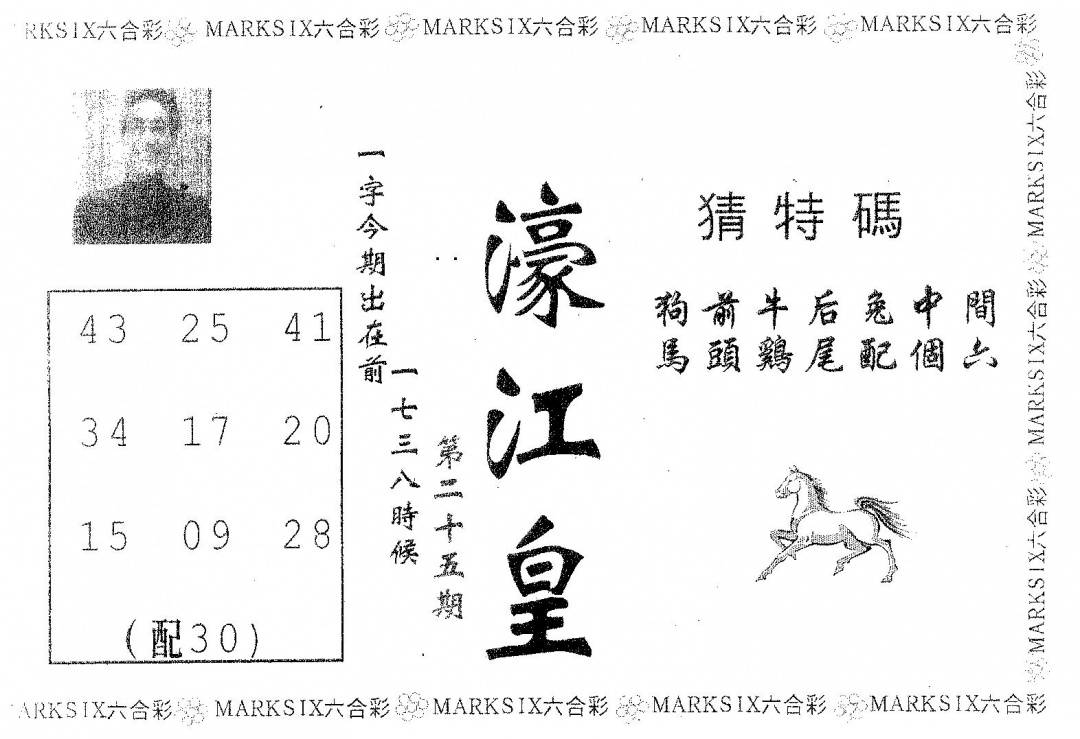 RKSIX六合彩 MARKSIX六合彩 MARKSIX六合彩 MARKSIX六合彩 MARKSIX六合彩
猜特碼
狗前牛后兔中間
馬頭鷄尾配個六
濠江皇
第二十五期
一字今期出在前
一七三八時候
43 25 41
34 17 20
15 09 28
(配30)
MARKSIX六合彩 MARKSIX六合彩 MARKSIX六合彩
ARKSIX六合彩 MARKSIX六合彩 MARKSIX六合彩 MARKSIX六合彩 MARKSIX六合彩